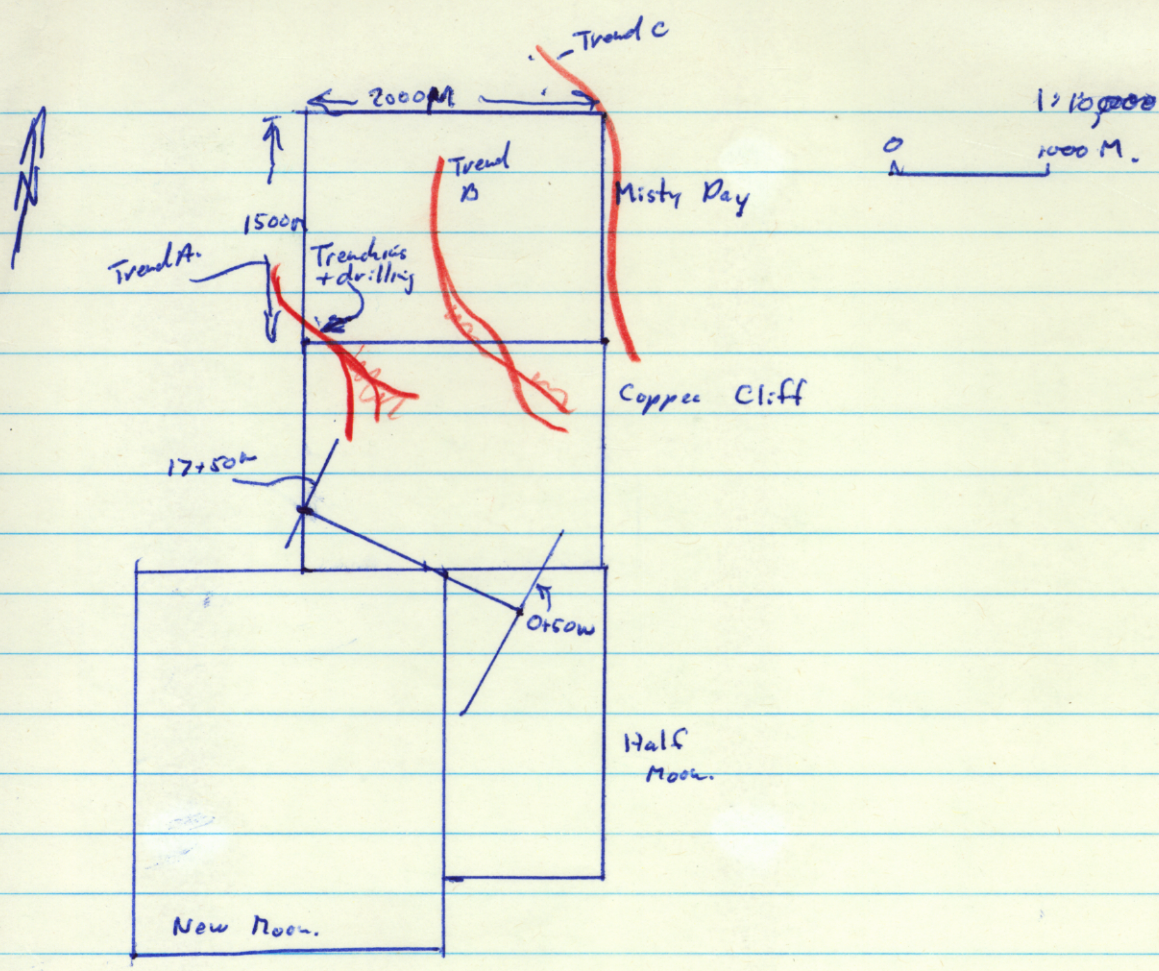 Trend C
2000M
1:10,000
0
1000 M.
Trend
B
Misty Day
1500m
Trend A.
Trenching
+ drilling
Copper Cliff
17+50W
0+50W
Half
Moon.
New Moon.